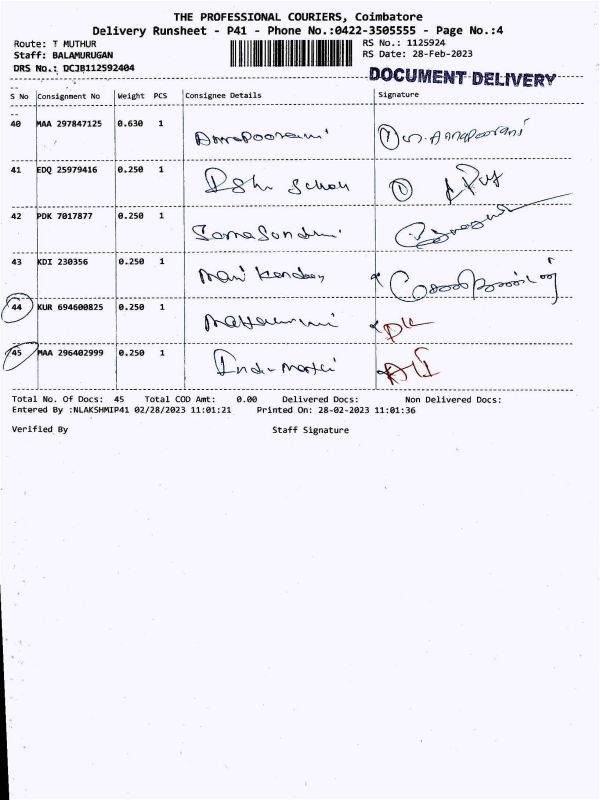 THE PROFESSIONAL COURIERS, Coimbatore
Delivery Runsheet - P41 - Phone No.:0422-3505555 - Page No.:4
Route: T MUTHUR RS No.: 1125924
Staff: BALAMURUGAN RS Date: 28-Feb-2023
DRS No.: DCJB112592404
DOCUMENT DELIVERY
S No Consignment No Weight PCS Consignee Details Signature
40 MAA 297847125 0.630 1 Annapoorani 1 Annapoorani
41 EDQ 25979416 0.250 1 1
42 PDK 7017877 0.250 1 Somasundram
43 KDI 230356 0.250 1 Mani kandan
44 KUR 694600825 0.250 1
45 MAA 296402999 0.250 1
Total No. Of Docs: 45 Total COD Amt: 0.00 Delivered Docs: Non Delivered Docs:
Entered By :NLAKSHMIP41 02/28/2023 11:01:21 Printed On: 28-02-2023 11:01:36
Verified By Staff Signature